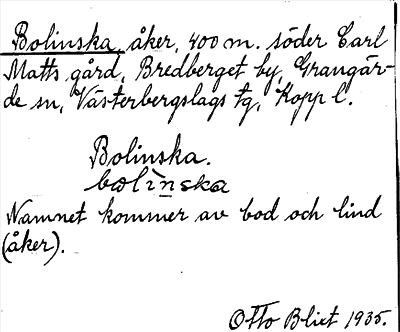 Bolinska, åker, 400 m. söder Carl
Matts gård, Bredberget by, Grangär-
de sn, Västerbergslags tg, Kopp l.
Bolinska.
bolinska
Namnet kommer av bod och lind
(åker).
Otto Blixt 1935.